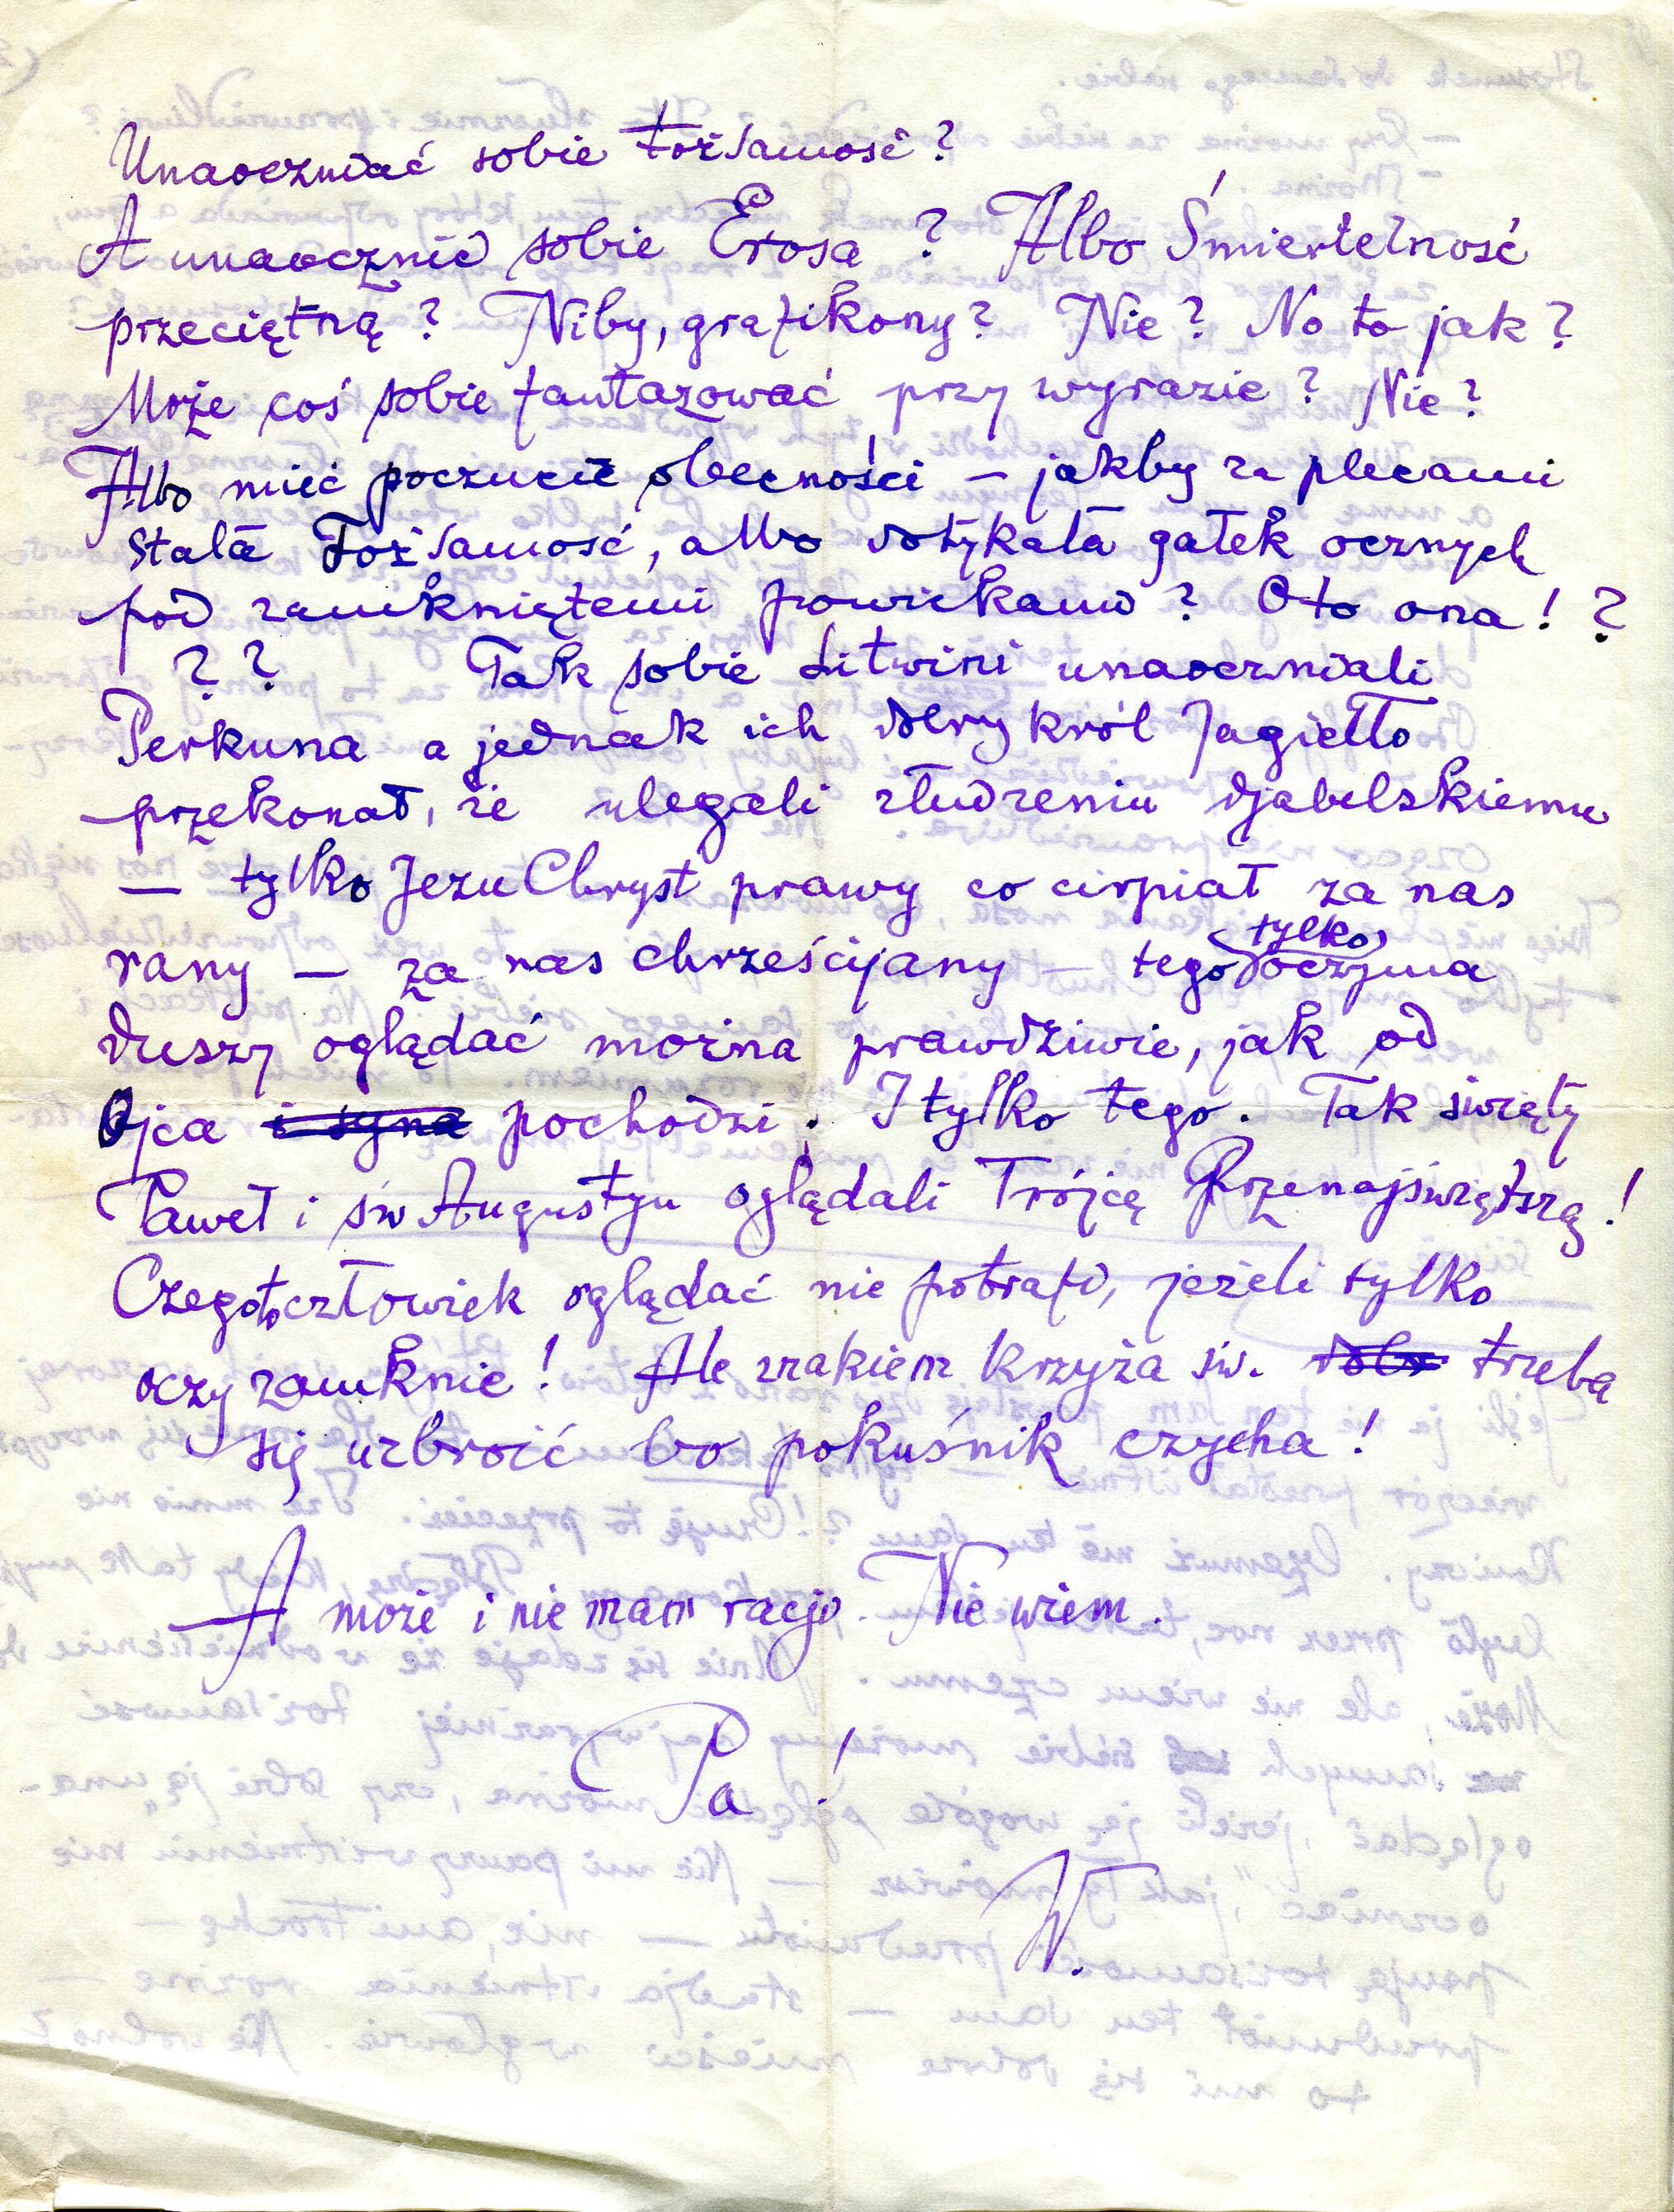 Unaoczniać sobie tożsamość?
A unaocznić sobie Erosa? Albo Śmiertelność
przeciętną? Niby, grafikony? Nie? No to jak?
Może coś sobie fantazować przy wyrazie? Nie?
Albo mieć poczucie obecności – jakby za plecami
stała Tożsamość, albo dotykała gałek ocznych
pod zamkniętemi powiekami? Oto ona! ?
? ? Tak sobie Litwini unaoczniali
Perkuna a jednak ich dobry król Jagiełło
przekonał, że ulegali złudzeniu djabelskiemu
– tylko Jezu Chryst prawy co cirpiał za nas
rany – za nas chrześcijany – tego tylko oczyma
duszy oglądać można prawdziwie, jak od
Ojca i syna pochodzi. I tylko tego. Tak święty
Paweł i św Augustyn oglądali Trójcę Przenajświętszą!
Czegoto człowiek oglądać nie potrafi, jeżeli tylko
oczy zamknie! Ale znakiem Krzyża św. trzeba
się uzbroić bo pokuśnik czycha!
A może i nie mam racji. Nie wiem.
Pa!
W.